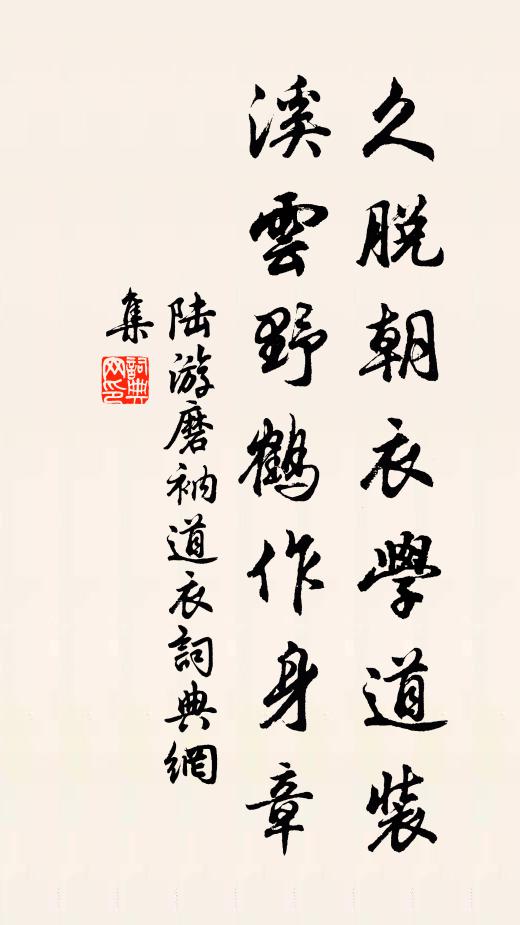 久脫朝衣學道裝
溪雲野鶴作身章
陆游磨衲道衣詞典網
集
詞典網印